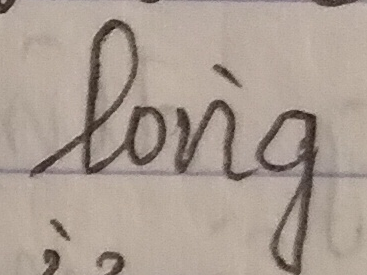 lòng